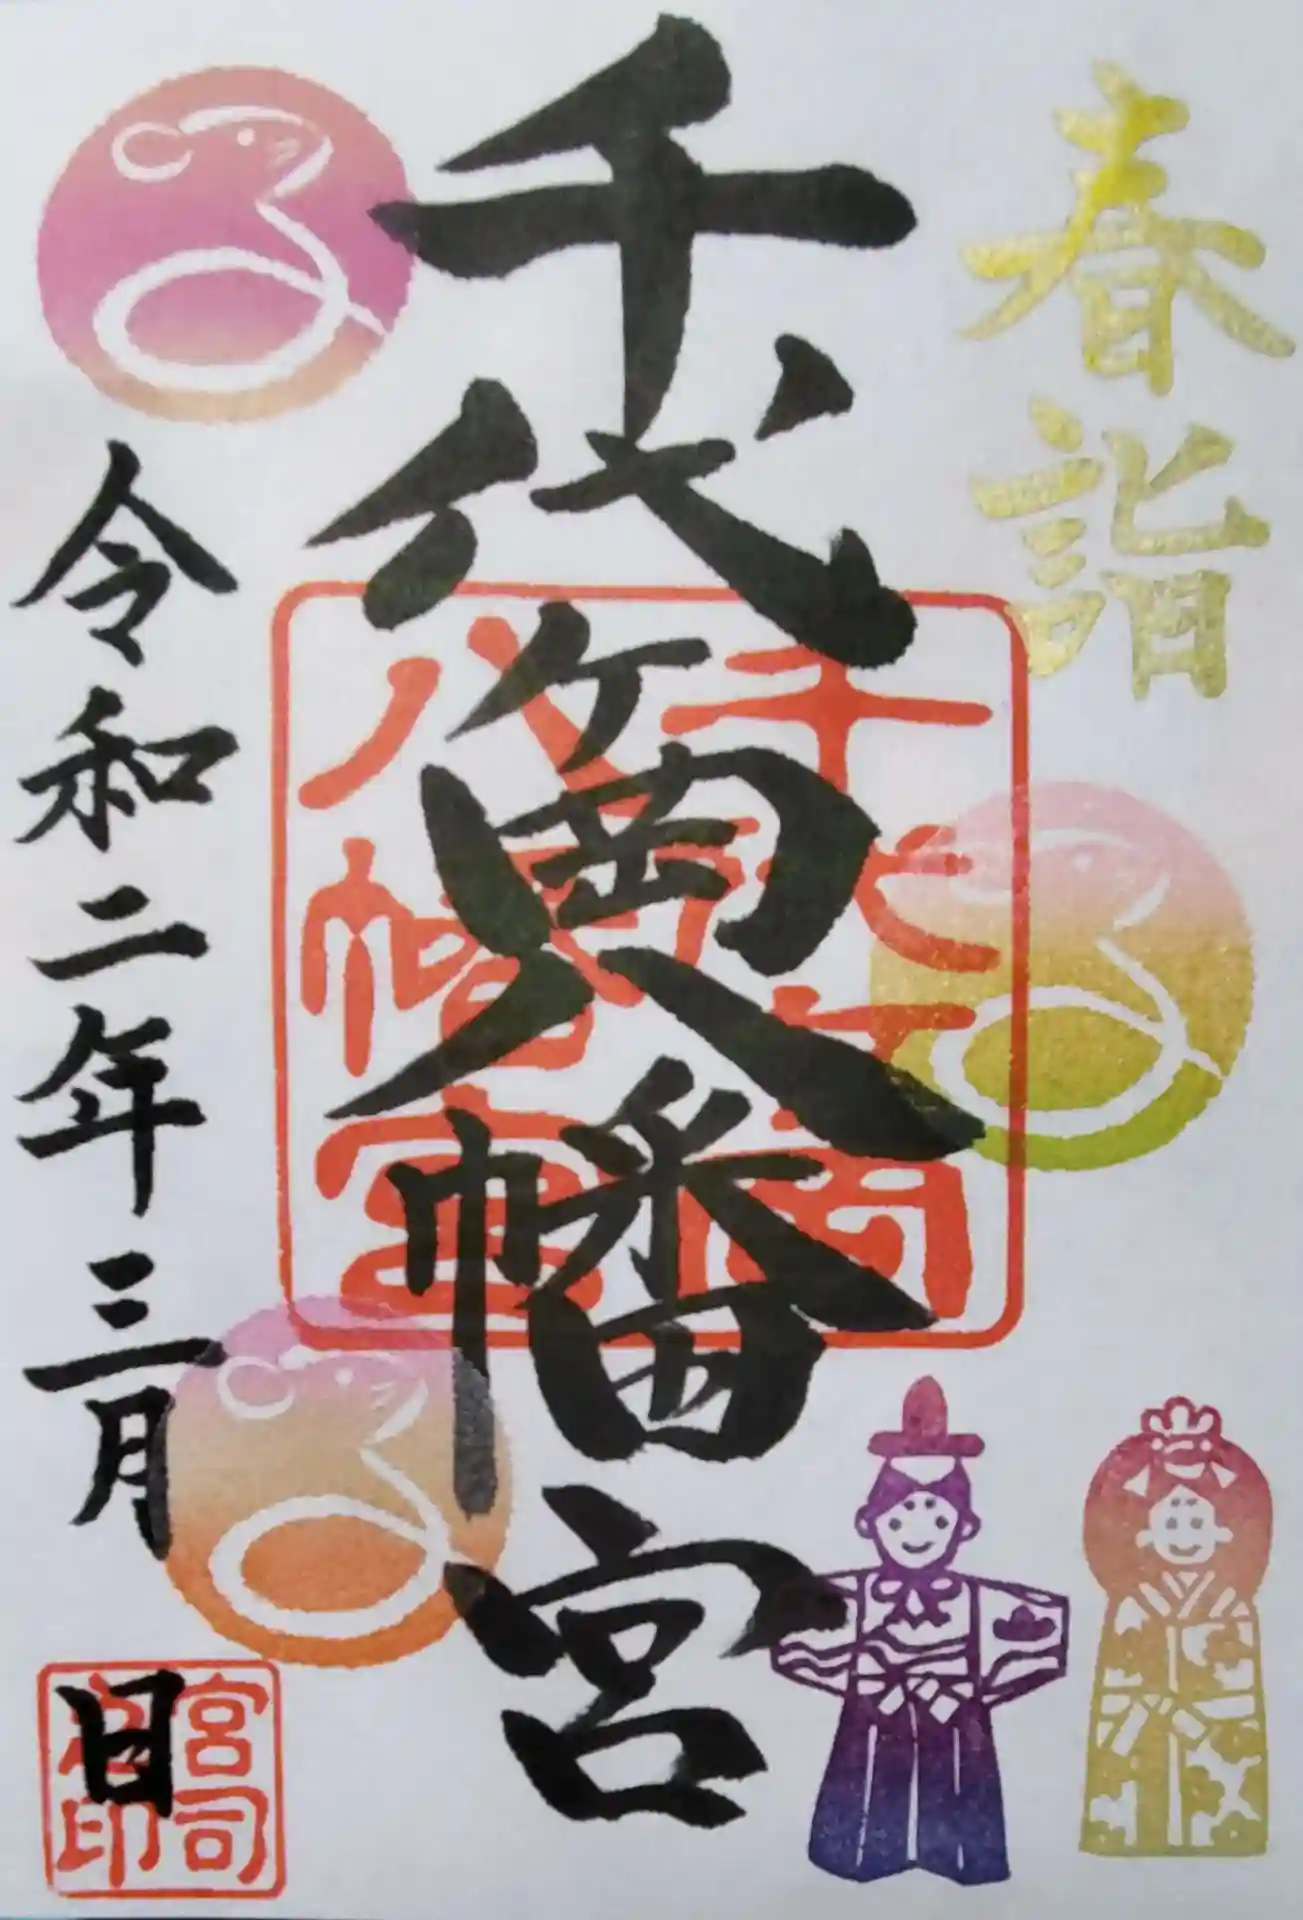 春詣
千代ヶ岡八幡宮
令和二年三月 日
八幡宮
宮司
印